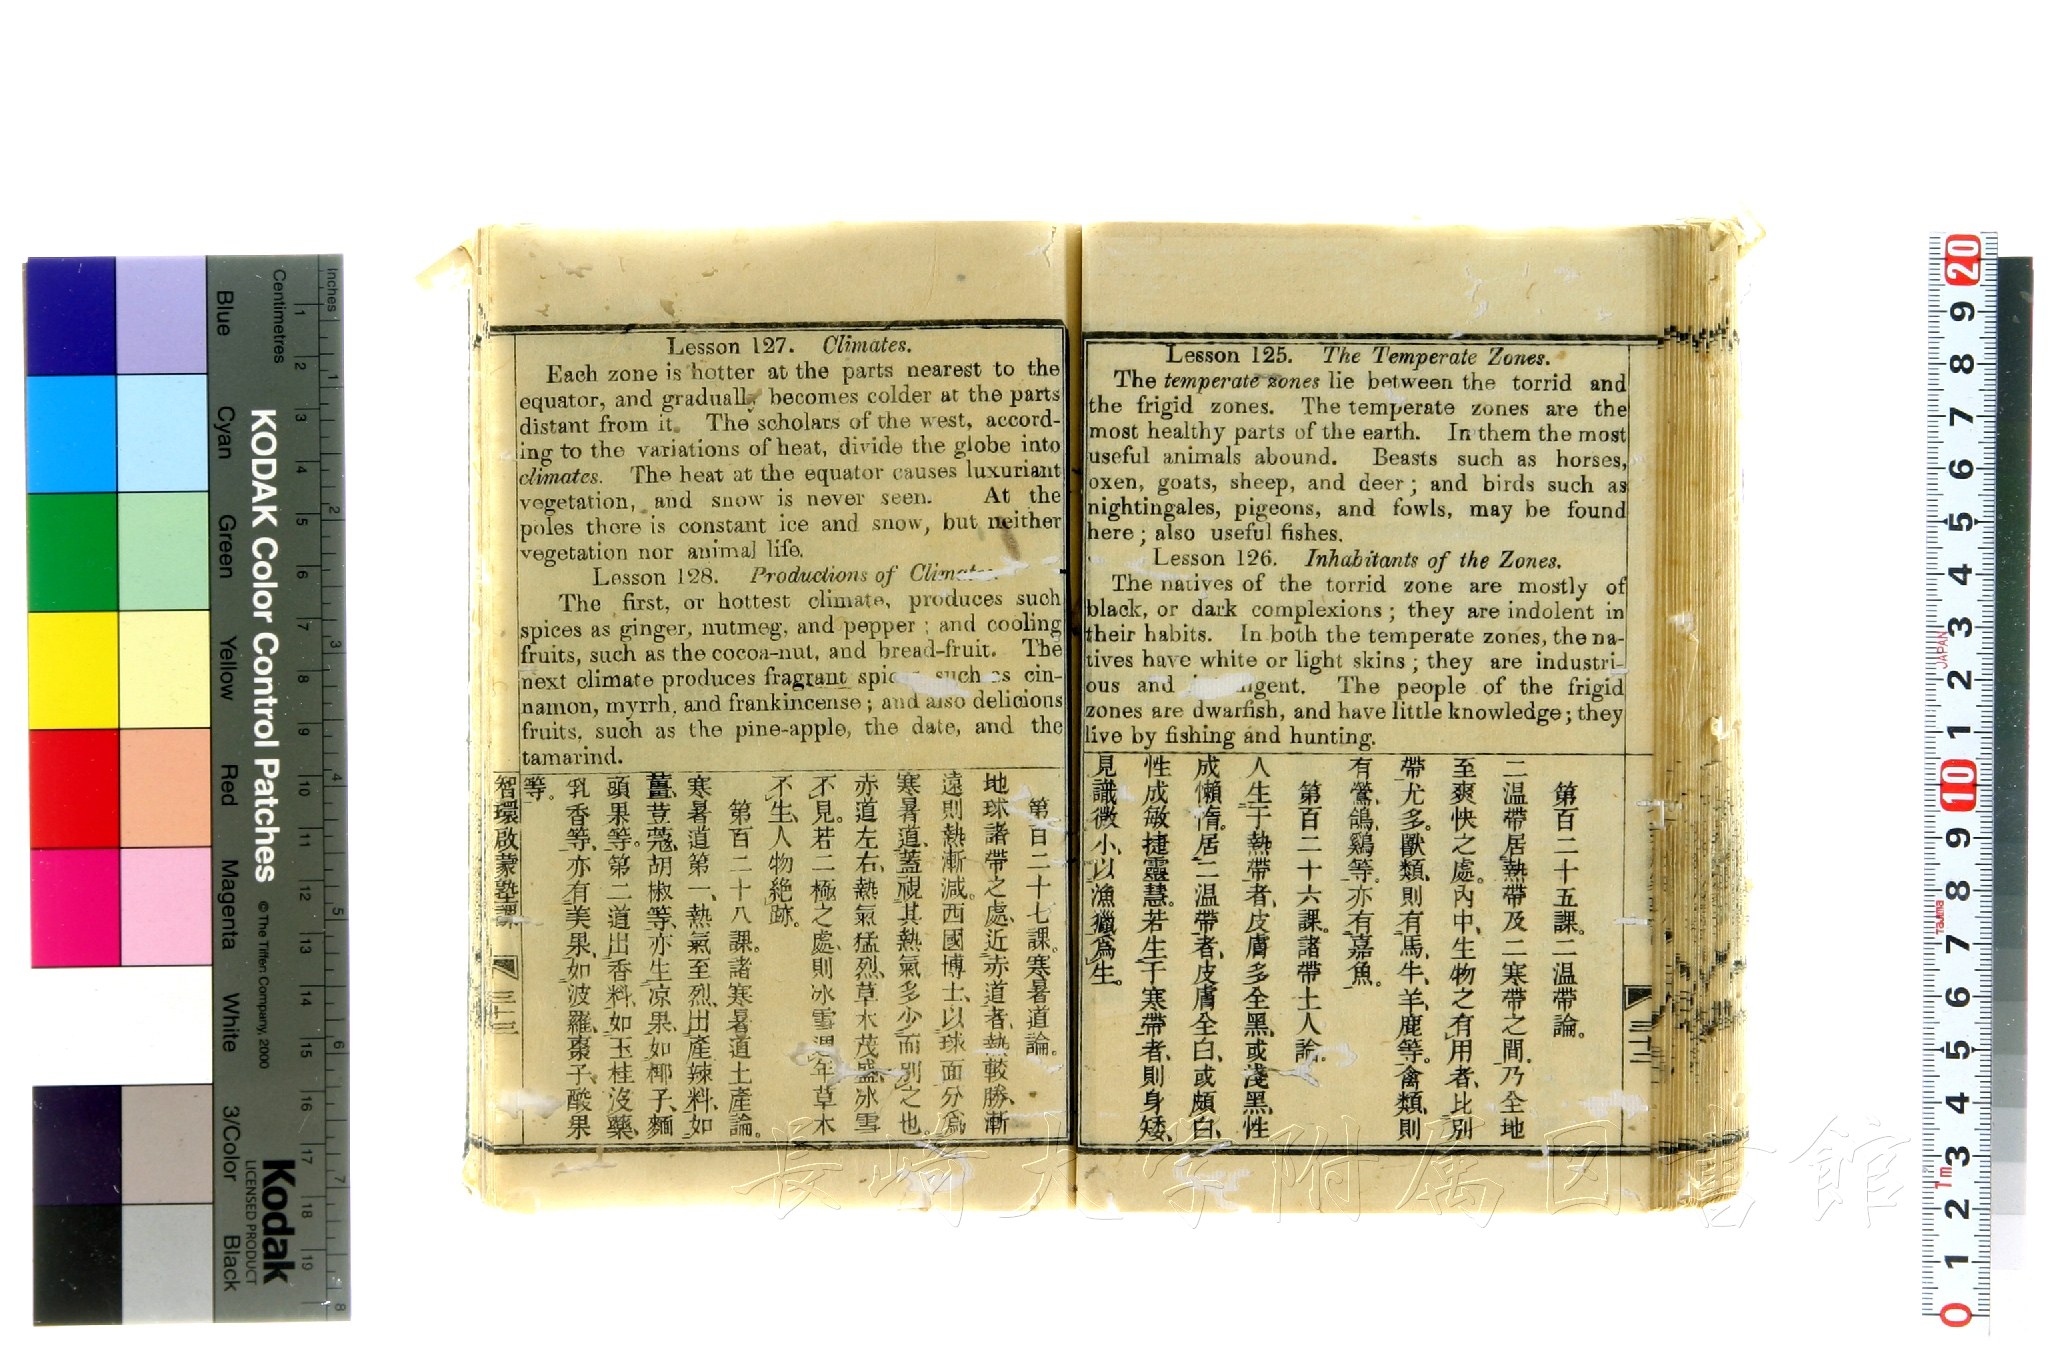 Lesson 125. The Temperate Zones.
The temperate zones lie between the torrid and
the frigid zones. The temperate zones are the
most healthy parts of the earth. In them the most
useful animals abound. Beasts such as horses,
oxen, goats, sheep, and deer; and birds such as
nightingales, pigeons, and fowls, may be found
here; also useful fishes.
Lesson 126. Inhabitants of the Zones.
The natives of the torrid zone are mostly of
black, or dark complexions; they are indolent in
their habits. In both the temperate zones, the na-
tives have white or light skins; they are industri-
ous and The people of the frigid
zones are dwarfish, and have little knowledge; they
live by fishing and hunting.
第百二十五課。二温帶論。
二温帶居熱帶及二寒帶之間、乃全地
至爽快之處。內中、生物之有用者、比別
帶尤多。獸類、則有馬、牛、羊、鹿等。禽類、則
有鶯、鴿、鷄等。亦有嘉魚。
第百二十六課。諸帶土人論。
人生于熱帶者、皮膚多全黑、或淺黑、性
成懶惰。居二温帶者、皮膚全白、或頗白、
性成敏捷靈慧。若生于寒帶者、則身矮、
見識微小、以漁獵為生。
三十二
Lesson 127. Climates.
Each zone is hotter at the parts nearest to the
equator, and gradually becomes colder at the parts
distant from it. The scholars of the west, accord-
ing to the variations of heat, divide the globe into
climates. The heat at the equator causes luxuriant
vegetation, and snow is never seen. At the
poles there is constant ice and snow, but neither
vegetation nor animal life.
Lesson 128. Productions of Climates.
The first, or hottest climate, produces such
spices as ginger, nutmeg, and pepper; and cooling
fruits, such as the cocoa-nut, and bread-fruit. The
next climate produces fragrant spices, such as cin-
namon, myrrh, and frankincense; and also delicious
fruits, such as the pine-apple, the date, and the
tamarind.
第百二十七課。寒暑道論。
地球諸帶之處、近赤道者、熱較勝、漸
遠則熱漸減。西國博士、以球面分為
寒暑道、蓋視其熱氣多少而別之也。
赤道左右、熱氣猛烈、草木茂盛、冰雪
不見。若二極之處、則冰雪年草木
不生、人物絶跡。
第百二十八課。諸寒暑道土產論。
寒暑道第一、熱氣至烈、出產辣料、如
薑、荳蔻、胡椒等、亦生凉果、如椰子、麵
頭果等。第二道出香料、如玉桂、沒藥、
乳香等、亦有美果、如波羅、棗子、酸果
等。
智環啟蒙塾課
三十三
長崎大学附属図書館
KODAK Color Control Patches
© The Tiffen Company, 2000
Kodak
LICENSED PRODUCT
Inches
Centimetres
Blue
Cyan
Green
Yellow
Red
Magenta
White
3/Color
Black
1 2 3 4 5 6 7 8 9 10 11 12 13 14 15 16 17 18 19
1 2 3 4 5 6 7 8
20 9 8 7 6 5 4 3 2 1 10 9 8 7 6 5 4 3 2 1 0
JAPAN
Tajima
1m